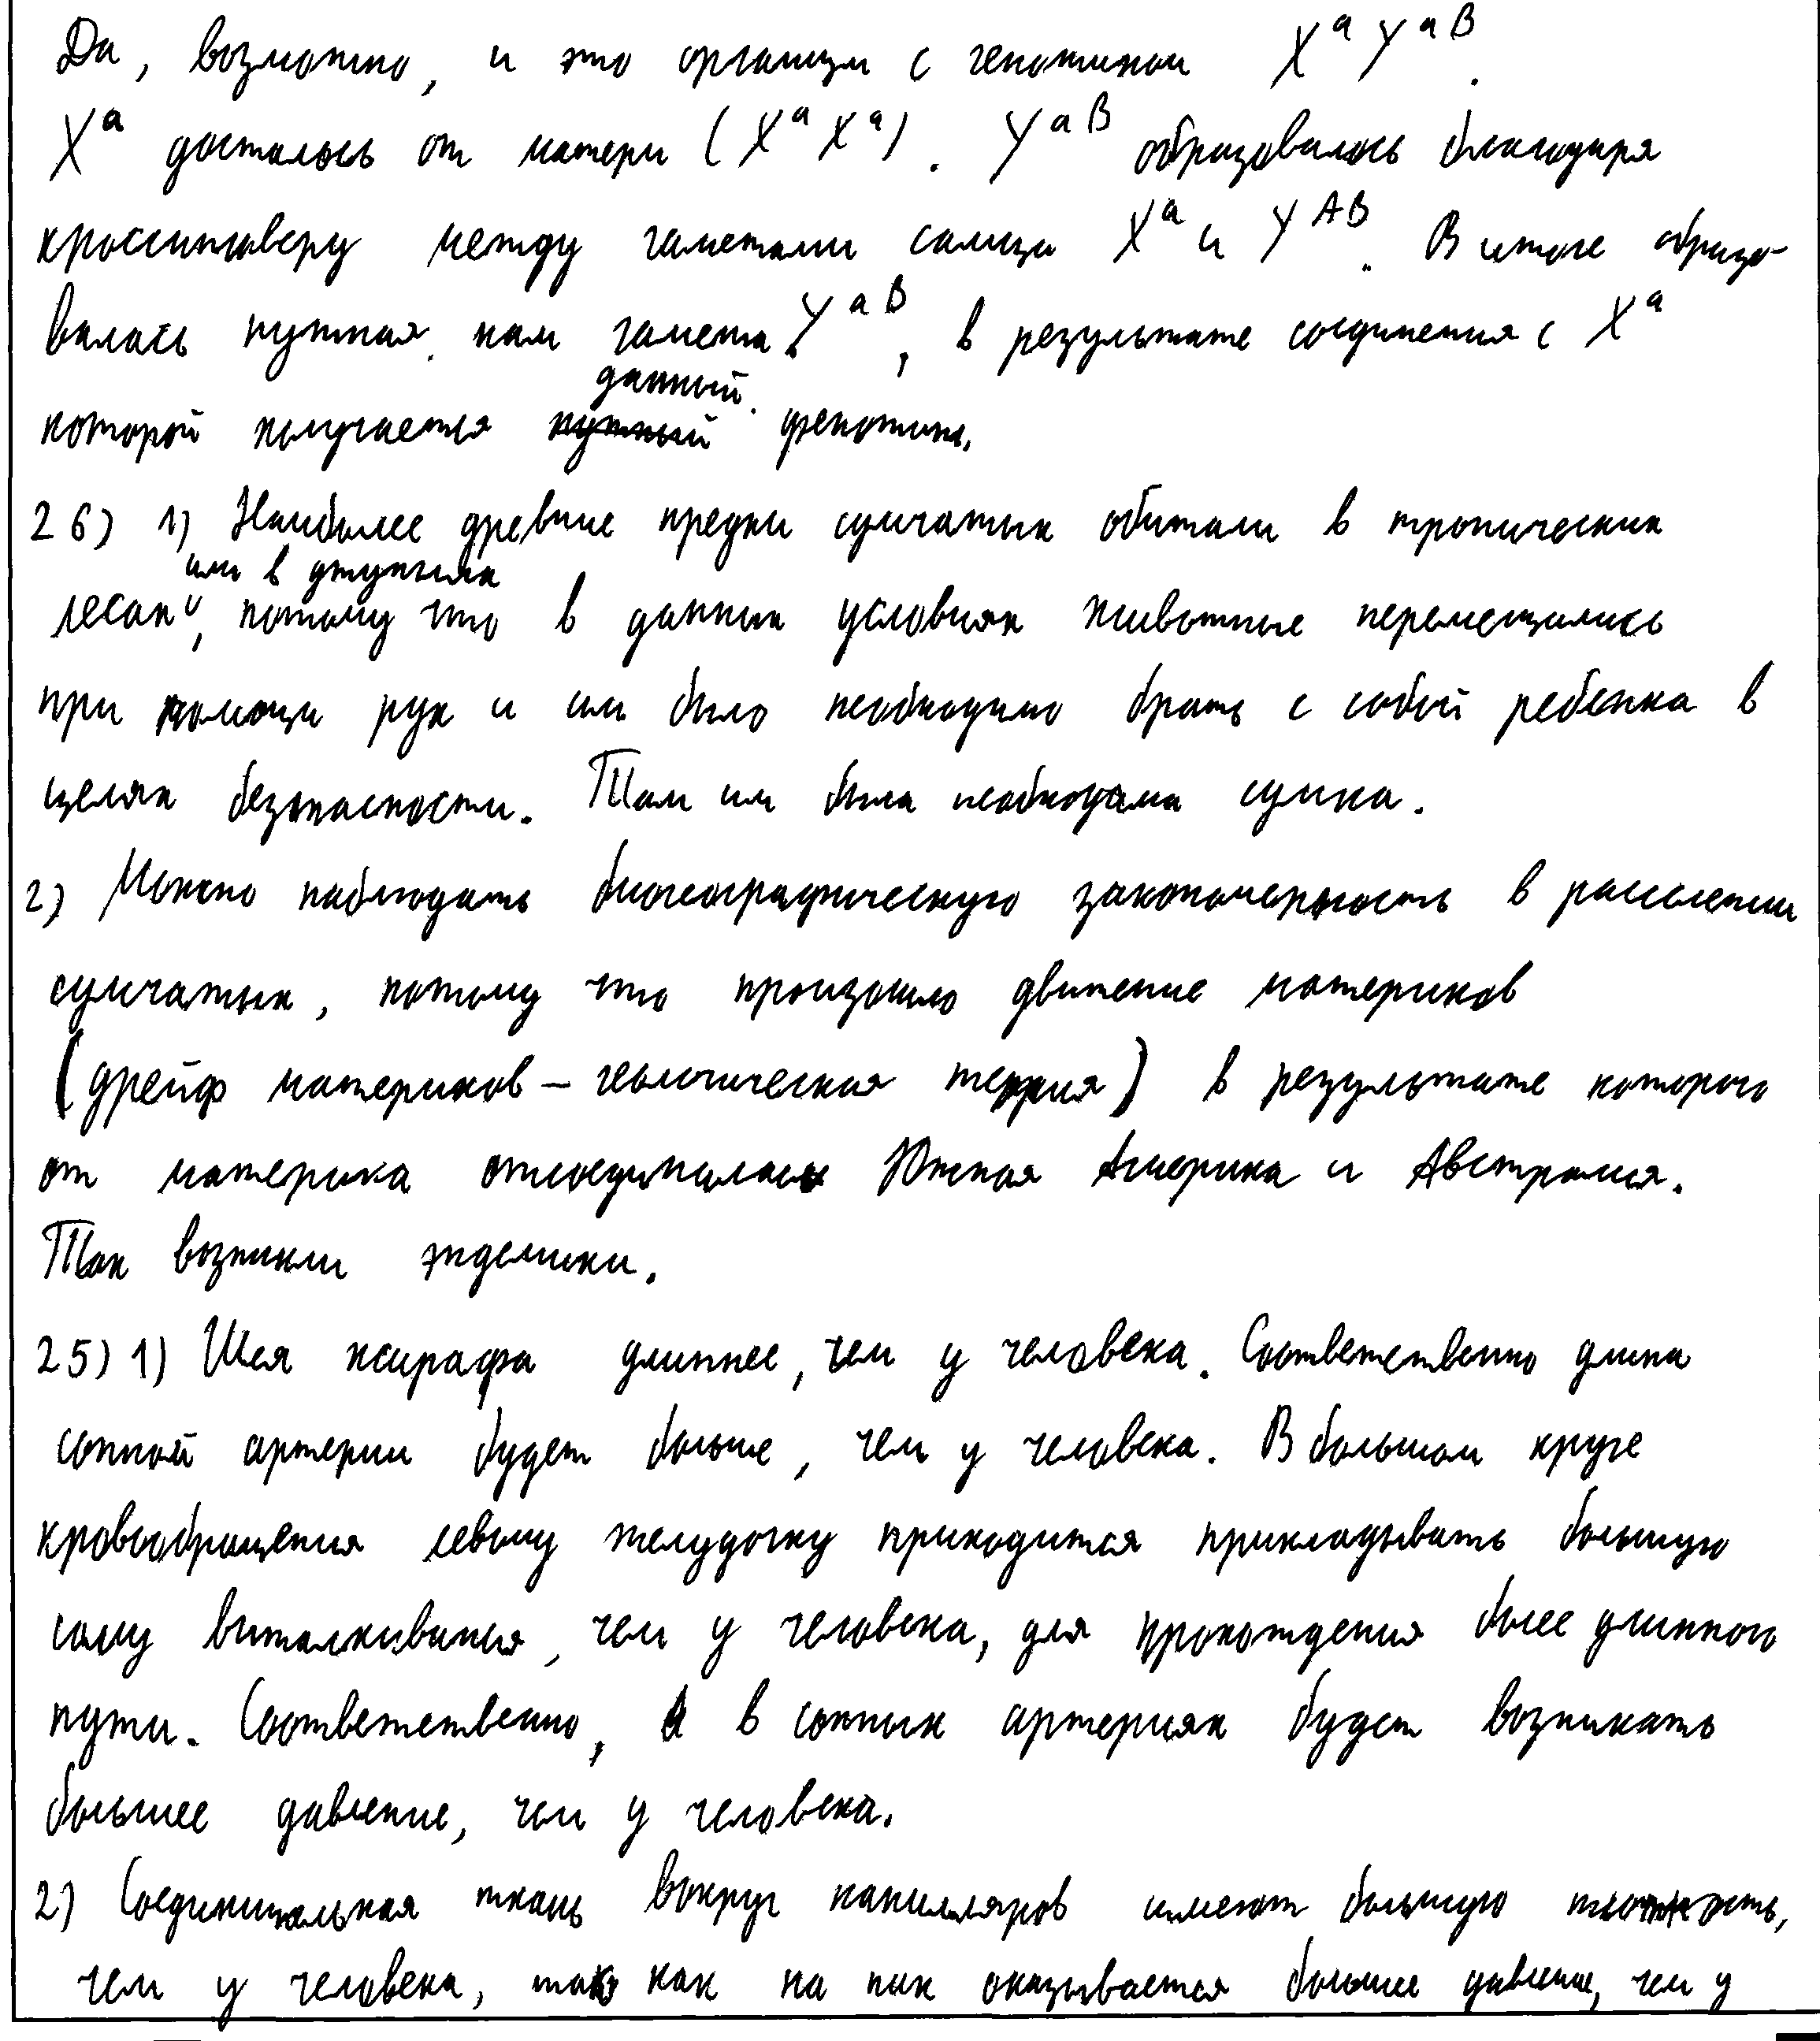 Да, возможно, и это организм с генотипом X^a Y^aB.
X^a досталось от матери (X^a X^a). Y^aB образовалось благодаря
кроссинговеру между гаметами самца X^a и Y^AB. В итоге образо-
валась нужная нам гамета Y^aB, в результате соединения с X^a
данный
которой получается нужный фенотип.
26) 1) Наиболее древние предки сумчатых обитали в тропических
или в джунглях
лесах, потому что в данных условиях животные перемещались
при помощи рук и им было необходимо брать с собой ребенка в
целях безопасности. Там им была необходима сумка.
2) Можно наблюдать биогеографическую закономерность в расселении
сумчатых, потому что произошло движение материков
(дрейф материков – геологическая теория) в результате которого
от материка отсоединилась Южная Америка и Австралия.
Так возникли эндемики.
25) 1) Шея жирафа длиннее, чем у человека. Соответственно длина
сонной артерии будет больше, чем у человека. В большом круге
кровообращения левому желудочку приходится прикладывать большую
силу выталкивания, чем у человека, для прохождения более длинного
пути. Соответственно, в сонных артериях будет возникать
большее давление, чем у человека.
2) Соединительная ткань вокруг капилляров имеют большую плотность,
чем у человека, так как на них оказывается большее давление, чем у